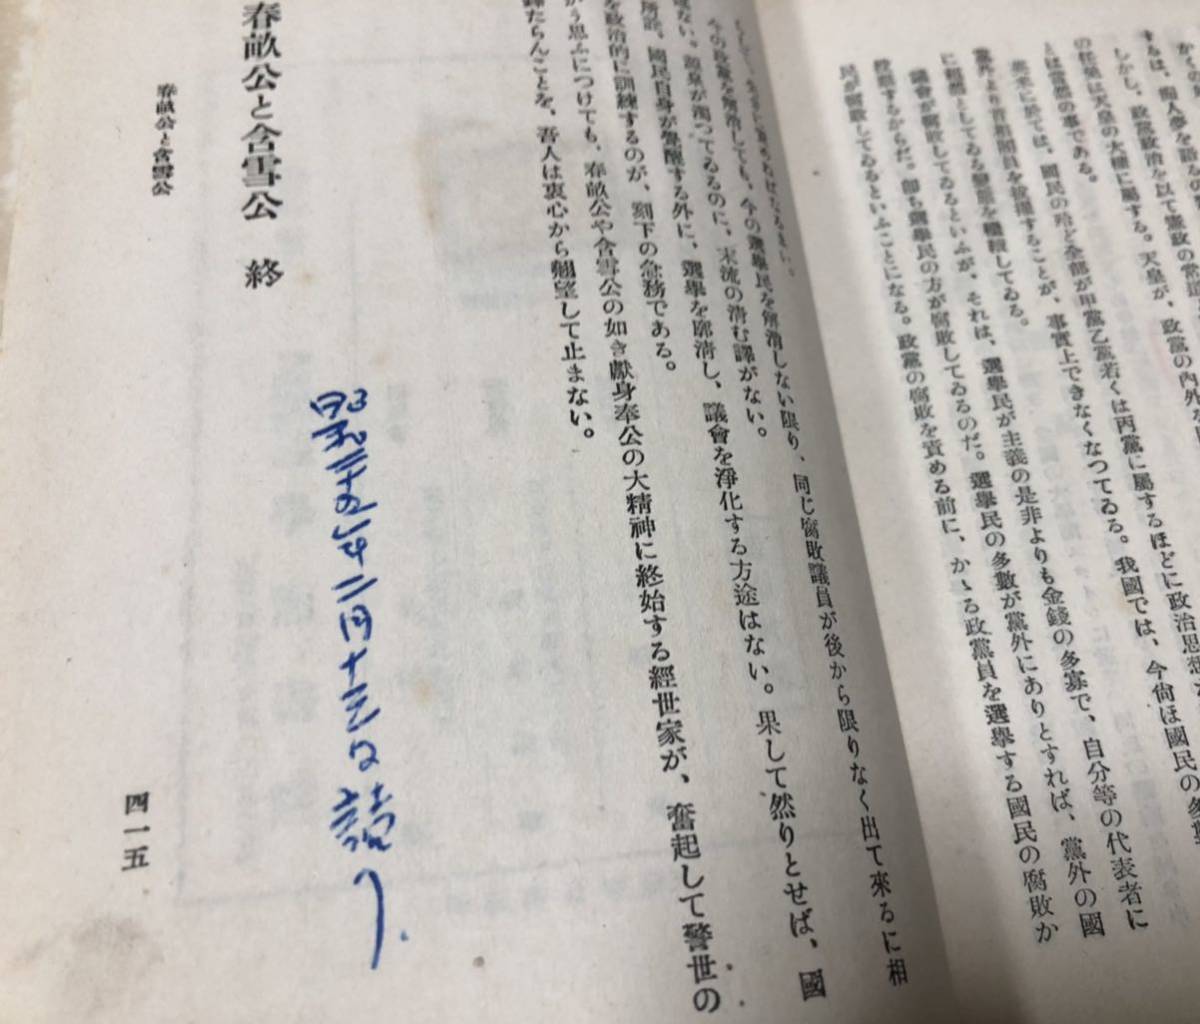 するは、痴人夢を語る
しかし、政黨政治を以て憲政の常道
の任免は天皇の大權に屬する。天皇が、政黨の內外
とは當然の事である。
英米に於ては、國民の殆ど全部が甲黨乙黨若くは丙黨に屬するほどに政治思想
黨外より首相閣員を拔擢することが、事實上できなくなつてゐる。我國では、今尙ほ國民の多
に超然としてゐる態度を
議會が腐敗してゐるといふが、それは、選擧民が主義の是非よりも金錢の多寡で、自分等の代表者に
投票するからだ。卽ち選擧民の方が腐敗してゐるのだ。選擧民の多數が黨外にありとすれば、黨外の國
民が腐敗してゐるといふことになる。政黨の腐敗を責める前に、かゝる政黨員を選擧する國民の腐敗か
今の政黨を解消しても、今の選擧民を解消しない限り、同じ腐敗議員が後から限りなく出て來るに相
違ない。源泉が濁つてゐるのに、末流の淸む譯がない。
所詮、國民自身が覺醒する外に、選擧を廓淸し、議會を淨化する方途はない。果して然りとせば、國
を政治的に訓練するのが、刻下の急務である。
う思ふにつけても、春畝公や含雪公の如き獻身奉公の大精神に終始する經世家が、奮起して警世の
鐸たらんことを、吾人は衷心から翹望して止まない。
春畝公と含雪公 終
昭和三十五年二月十三日 讀了
春畝公と含雪公
四一五